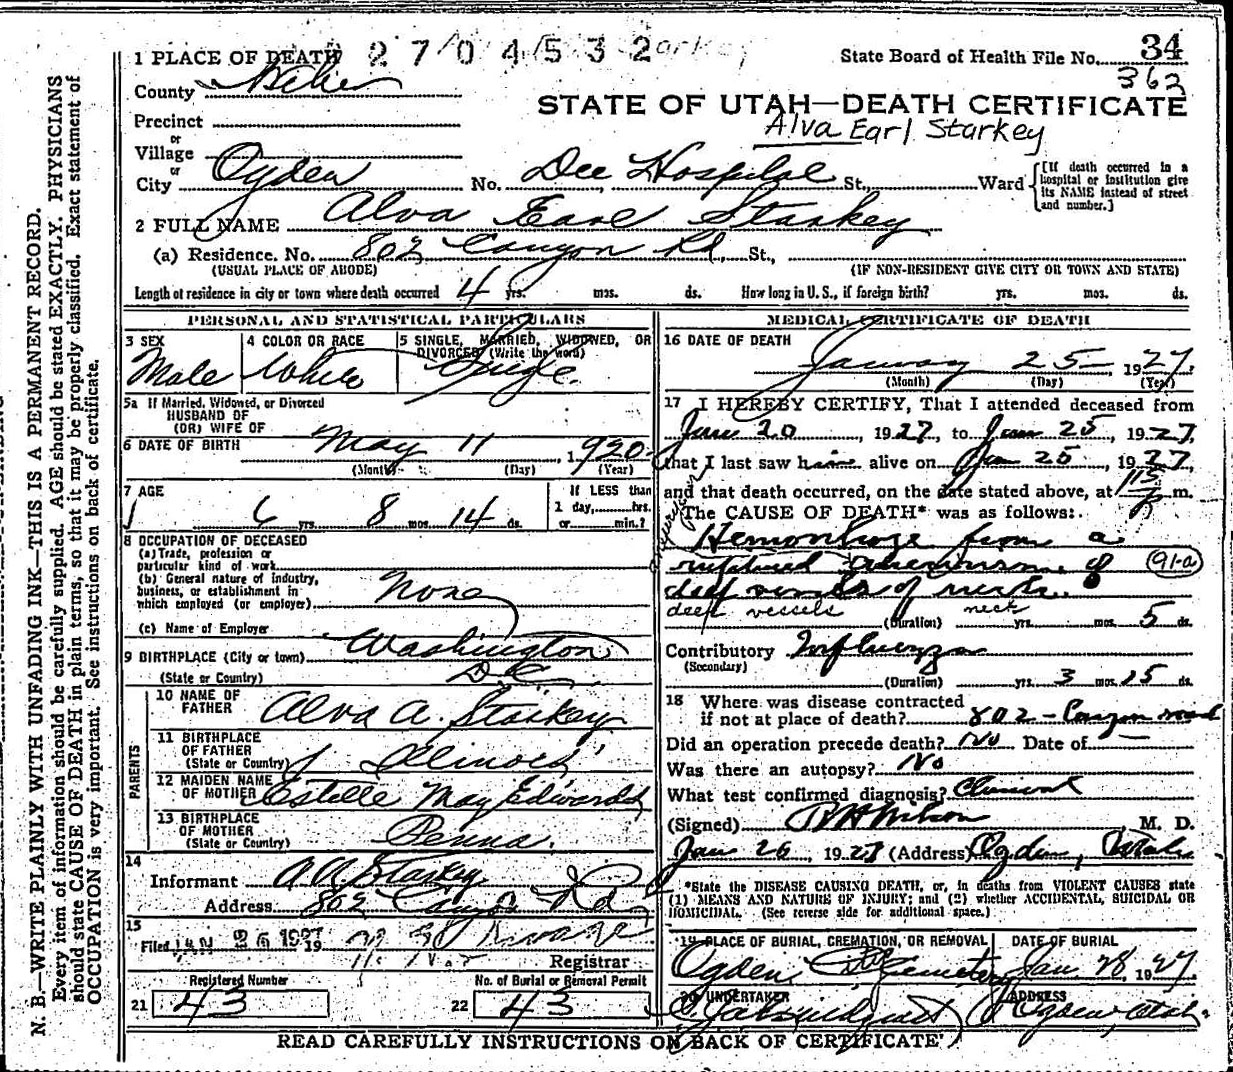 N. B.—WRITE PLAINLY WITH UNFADING INK—THIS IS A PERMANENT RECORD.
Every item of information should be carefully supplied. AGE should be stated EXACTLY. PHYSICIANS
should state CAUSE OF DEATH in plain terms, so that it may be properly classified. Exact statement of
OCCUPATION is very important. See instructions on back of certificate.
1 PLACE OF DEATH 2704532 Starkey
State Board of Health File No. 34
362
County Weber
STATE OF UTAH—DEATH CERTIFICATE
Alva Earl Starkey
Precinct
or
Village
or
City Ogden No. Dee Hospital St., Ward
[If death occurred in a
hospital or institution give
its NAME instead of street
and number.]
2 FULL NAME Alva Earl Starkey
(a) Residence. No. 802 Canyon Rd., St.,
(USUAL PLACE OF ABODE) (IF NON-RESIDENT GIVE CITY OR TOWN AND STATE)
Length of residence in city or town where death occurred 4 yrs. mos. ds. How long in U. S., if foreign birth? yrs. mos. ds.
PERSONAL AND STATISTICAL PARTICULARS
3 SEX
Male
4 COLOR OR RACE
White
5 SINGLE, MARRIED, WIDOWED, OR
DIVORCED (Write the word)
Single
5a If Married, Widowed, or Divorced
HUSBAND OF
(OR) WIFE OF
6 DATE OF BIRTH May 11 1920
(Month) (Day) (Year)
7 AGE
6 yrs. 8 mos. 14 ds.
If LESS than
1 day, hrs.
or min.?
8 OCCUPATION OF DECEASED
(a) Trade, profession or
particular kind of work
(b) General nature of industry,
business, or establishment in
which employed (or employer) None
(c) Name of Employer
9 BIRTHPLACE (City or town) Washington
(State or Country) D.C.
PARENTS
10 NAME OF
FATHER Alva A. Starkey
11 BIRTHPLACE
OF FATHER
(State or Country) Illinois
12 MAIDEN NAME
OF MOTHER Estelle May Edwards
13 BIRTHPLACE
OF MOTHER
(State or Country) Penna.
14
Informant A A Starkey
Address 802 Canyon Rd
15
Filed JAN 26 1927 19
Registrar
Registered Number
21 43
No. of Burial or Removal Permit
22 43
MEDICAL CERTIFICATE OF DEATH
16 DATE OF DEATH
January 25 1927
(Month) (Day) (Year)
17 I HEREBY CERTIFY, That I attended deceased from
Jan 20, 1927, to Jan 25, 1927
that I last saw him alive on Jan 25, 1927
and that death occurred, on the date stated above, at m.
The CAUSE OF DEATH* was as follows:
Hemorrhage from a
ruptured aneurism of 91-a
deep vessels of neck.
deep vessels neck
(Duration) yrs. mos. 5 ds.
Contributory Influenza
(Secondary)
(Duration) yrs. 3 mos. 15 ds.
18 Where was disease contracted
if not at place of death? 802 - Canyon road
Did an operation precede death? No Date of —
Was there an autopsy? No
What test confirmed diagnosis? Clinical
(Signed) R H Wilson M. D.
Jan 26, 1927 (Address) Ogden, Utah
*State the DISEASE CAUSING DEATH, or, in deaths from VIOLENT CAUSES state
(1) MEANS AND NATURE OF INJURY; and (2) whether ACCIDENTAL, SUICIDAL OR
HOMICIDAL. (See reverse side for additional space.)
19 PLACE OF BURIAL, CREMATION, OR REMOVAL
Ogden City Cemetery
DATE OF BURIAL
Jan. 28, 1927
20 UNDERTAKER
ADDRESS
Ogden, Utah.
READ CAREFULLY INSTRUCTIONS ON BACK OF CERTIFICATE